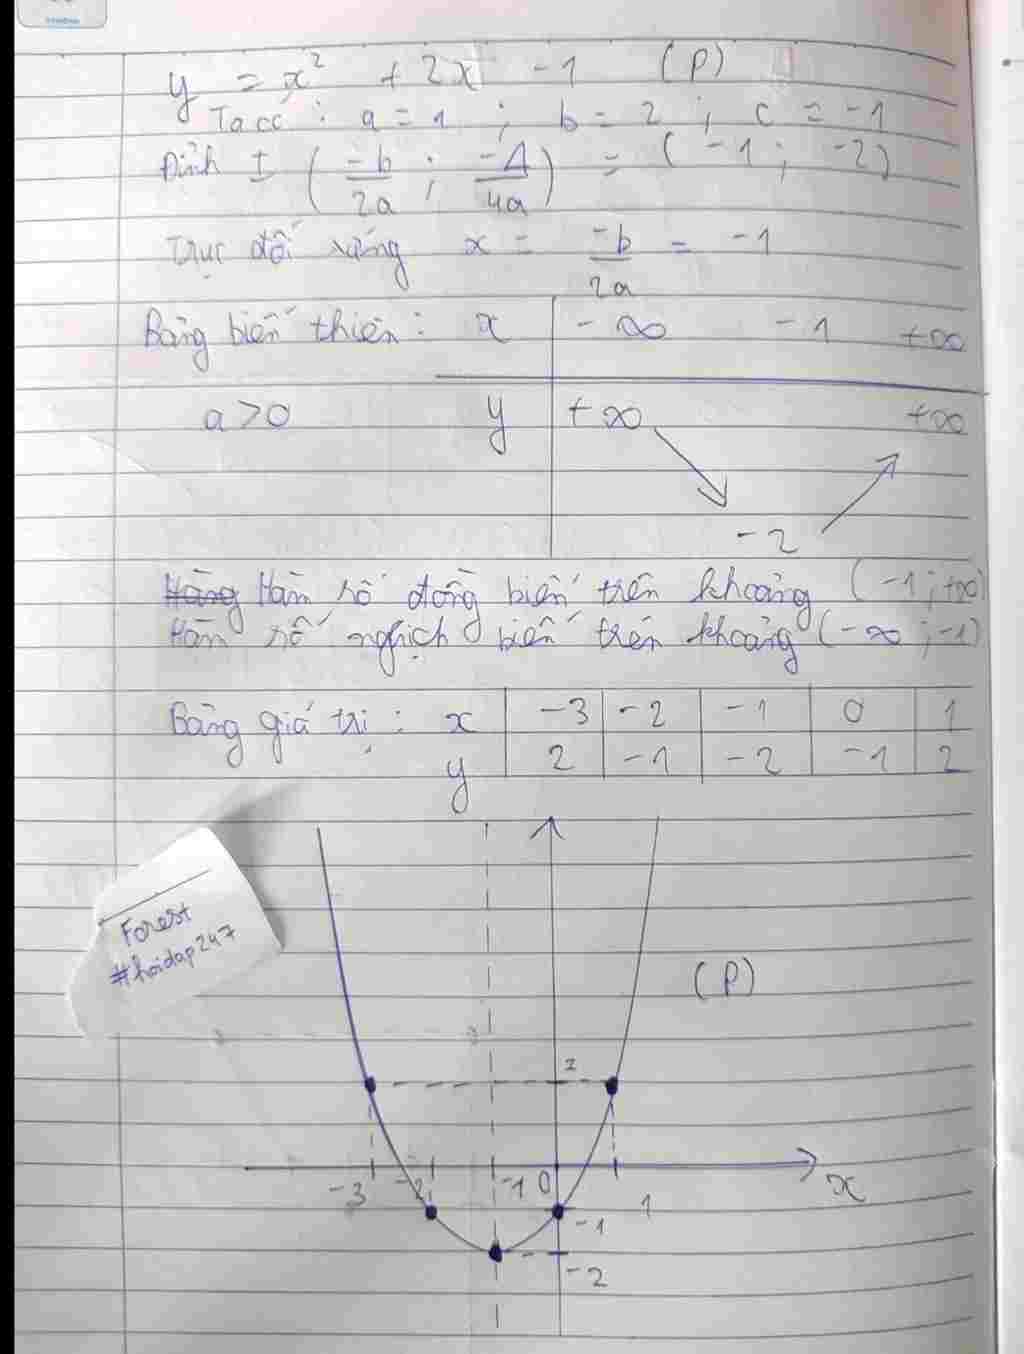 y = x² + 2x - 1 (P)
Ta có : a = 1 ; b = 2 ; c = -1
Đỉnh I (-b/2a ; -Δ/4a) = (-1 ; -2)
Trục đối xứng x = -b/2a = -1
Bảng biến thiên : x -∞ -1 +∞
a > 0 y +∞ +∞
-2
Hàng Hàm số đồng biến trên khoảng (-1 ; +∞)
Hàm số nghịch biến trên khoảng (-∞ ; -1)
Bảng giá trị : x -3 -2 -1 0 1
y 2 -1 -2 -1 2
Forest
#hoidap247
(P)
2
-3 -2 -1 0 1 x
-1
-2